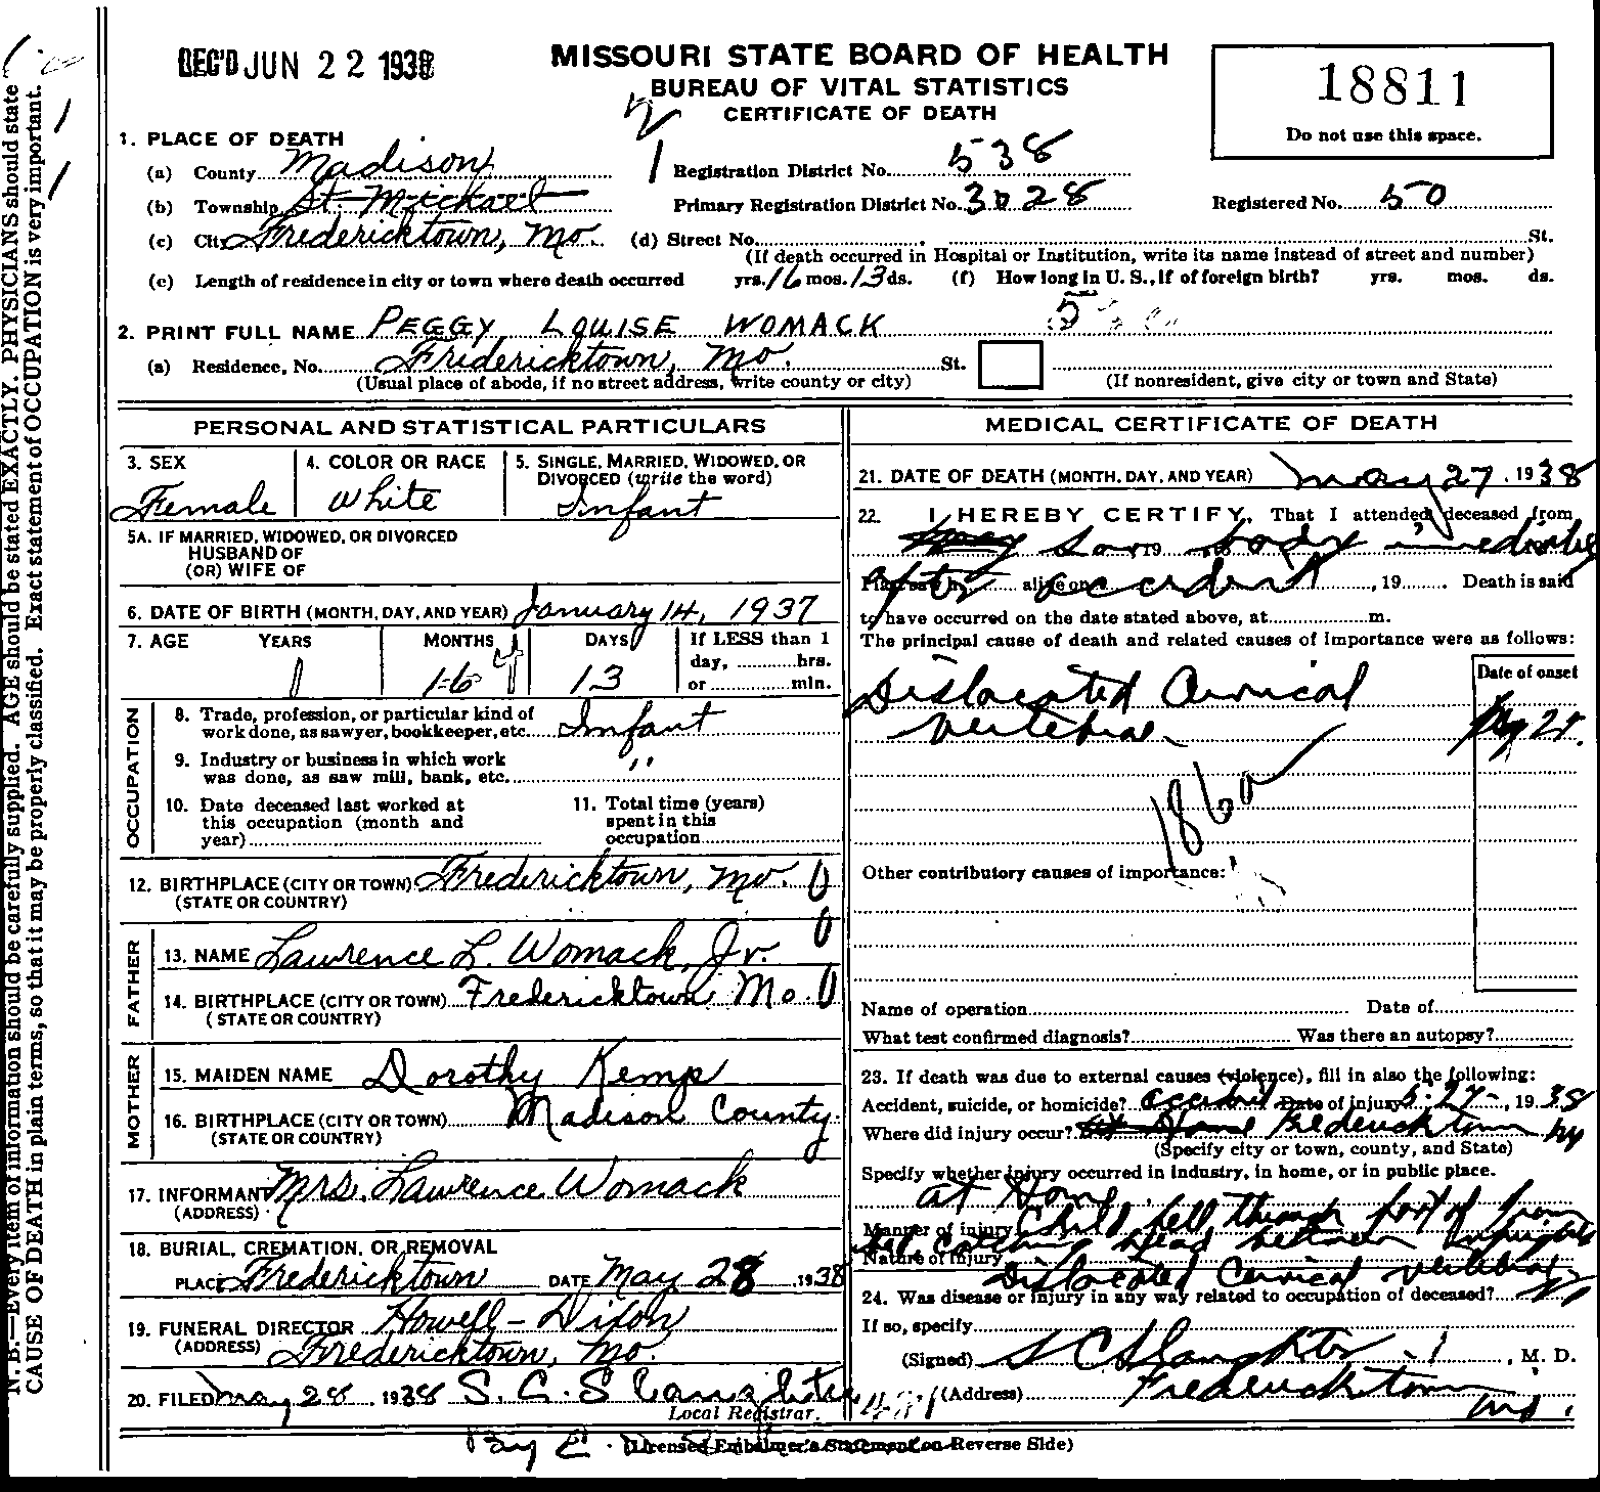 REC'D JUN 22 1938
MISSOURI STATE BOARD OF HEALTH
BUREAU OF VITAL STATISTICS
CERTIFICATE OF DEATH
18811
Do not use this space.
1. PLACE OF DEATH
(a) County Madison
Registration District No. 538
(b) Township St. Michael
Primary Registration District No. 3028
Registered No. 50
(c) City Fredericktown, Mo. (d) Street No. St.
(If death occurred in Hospital or Institution, write its name instead of street and number)
(e) Length of residence in city or town where death occurred yrs. 16 mos. 13 ds. (f) How long in U. S., if of foreign birth? yrs. mos. ds.
2. PRINT FULL NAME PEGGY LOUISE WOMACK
(a) Residence, No. Fredericktown, Mo. St.
(Usual place of abode, if no street address, write county or city) (If nonresident, give city or town and State)
PERSONAL AND STATISTICAL PARTICULARS
3. SEX Female
4. COLOR OR RACE White
5. SINGLE, MARRIED, WIDOWED, OR DIVORCED (write the word) Infant
5A. IF MARRIED, WIDOWED, OR DIVORCED
HUSBAND OF
(OR) WIFE OF
6. DATE OF BIRTH (MONTH, DAY, AND YEAR) January 14, 1937
7. AGE YEARS MONTHS DAYS If LESS than 1
day, hrs.
or min.
1 16 4 13
OCCUPATION
8. Trade, profession, or particular kind of
work done, as sawyer, bookkeeper, etc. Infant
9. Industry or business in which work
was done, as saw mill, bank, etc. "
10. Date deceased last worked at
this occupation (month and
year)
11. Total time (years)
spent in this
occupation
12. BIRTHPLACE (CITY OR TOWN) Fredericktown, Mo. 0
(STATE OR COUNTRY)
FATHER
13. NAME Lawrence L. Womack, Jr.
14. BIRTHPLACE (CITY OR TOWN) Fredericktown Mo. 0
(STATE OR COUNTRY)
MOTHER
15. MAIDEN NAME Dorothy Kemp
16. BIRTHPLACE (CITY OR TOWN) Madison County
(STATE OR COUNTRY)
17. INFORMANT Mrs. Lawrence Womack
(ADDRESS)
18. BURIAL, CREMATION, OR REMOVAL
PLACE Fredericktown DATE May 28 1938
19. FUNERAL DIRECTOR Howell-Dixon
(ADDRESS) Fredericktown, Mo.
20. FILED May 28, 1938 S. C. Slaughter
Local Registrar.
By E.
(Licensed Embalmer's Statement on Reverse Side)
MEDICAL CERTIFICATE OF DEATH
21. DATE OF DEATH (MONTH, DAY, AND YEAR) May 27, 1938
22. I HEREBY CERTIFY, That I attended deceased from
saw body immediately
after accident alive on , 19 Death is said
to have occurred on the date stated above, at m.
The principal cause of death and related causes of importance were as follows:
Date of onset
Dislocated Cervical
Vertebrae
May 27
186a
Other contributory causes of importance:
Name of operation Date of
What test confirmed diagnosis? Was there an autopsy?
23. If death was due to external causes (violence), fill in also the following:
Accident, suicide, or homicide? accident Date of injury 5-27-, 1938
Where did injury occur? At Home Fredericktown
(Specify city or town, county, and State)
Specify whether injury occurred in industry, in home, or in public place.
at Home
Manner of injury Child fell through part of
bed catching head between uprights
Nature of injury
Dislocated Cervical Vertebrae
24. Was disease or injury in any way related to occupation of deceased?
If so, specify
(Signed) S C Slaughter, M. D.
(Address) Fredericktown
Mo.
N. B.—Every item of information should be carefully supplied. AGE should be stated EXACTLY. PHYSICIANS should state
CAUSE OF DEATH in plain terms, so that it may be properly classified. Exact statement of OCCUPATION is very important.